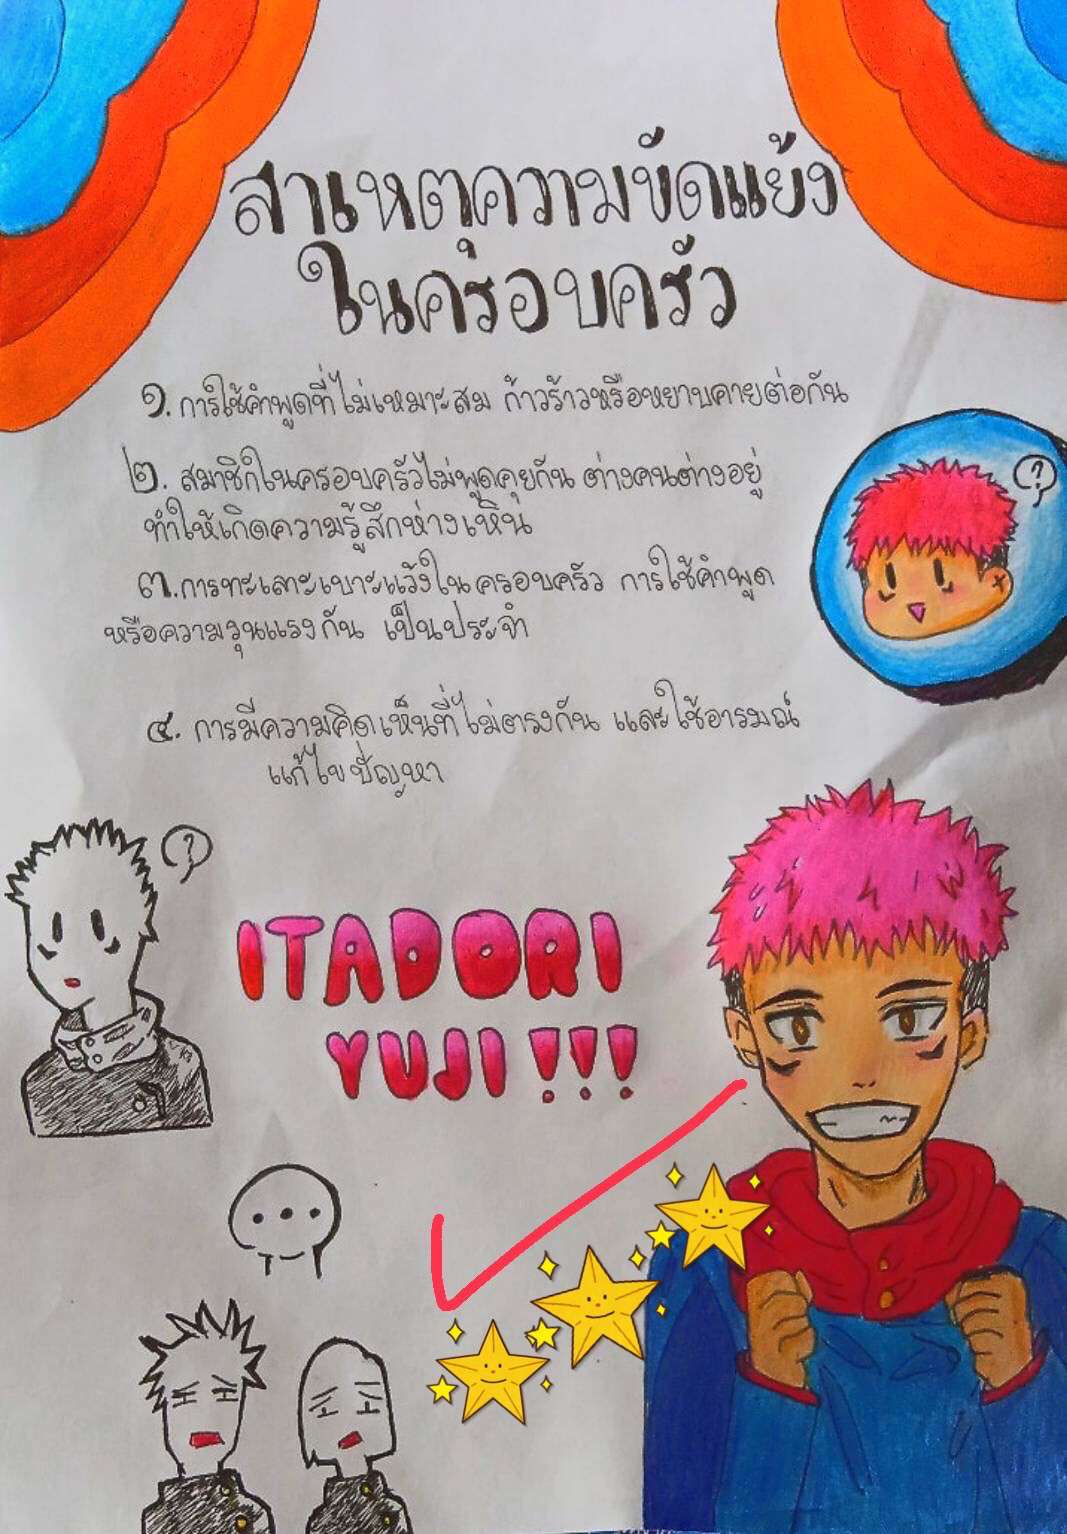 สาเหตุความขัดแย้ง
ในครอบครัว
๑. การใช้คำพูดที่ไม่เหมาะสม ก้าวร้าวหรือหยาบคายต่อกัน
๒. สมาชิกในครอบครัวไม่พูดคุยกัน ต่างคนต่างอยู่
ทำให้เกิดความรู้สึกห่างเหิน
๓. การทะเลาะเบาะแว้งในครอบครัว การใช้คำพูด
หรือความรุนแรงกัน เป็นประจำ
๔. การมีความคิดเห็นที่ไม่ตรงกัน และใช้อารมณ์
แก้ไขปัญหา
?
?
ITADORI
YUJI !!!
...